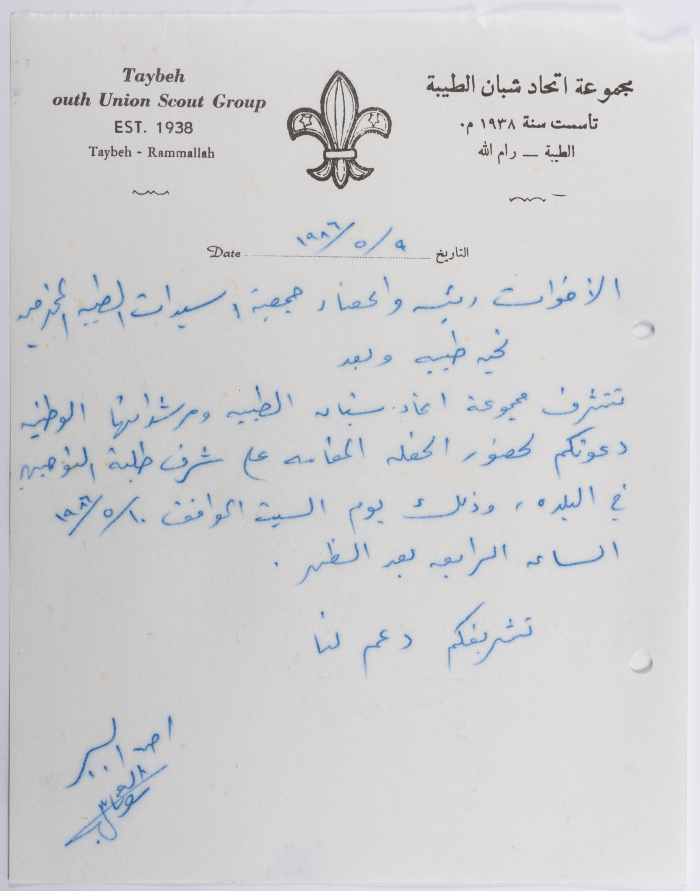 Taybeh
outh Union Scout Group
EST. 1938
Taybeh - Rammallah
مجموعة اتحاد شبان الطيبة
تأسست سنة ١٩٣٨ م.
الطيبة — رام الله
Date ١٩٨٦/٥/٩ التاريخ
الأخوات رئيسه واعضاء جمعية السيدات الطيبه
تحيه طيبه وبعد
تتشرف مجموعة اتحاد شبان الطيبه ومرشداتها الوطنيه
دعوتكم لحضور الحفله المقامه على شرف طلبة التوجيهي
في البلده، وذلك يوم السبت الموافق ١٩٨٦/٥/١٠
الساعه الرابعه بعد الظهر.
تشريفكم دعم لنا